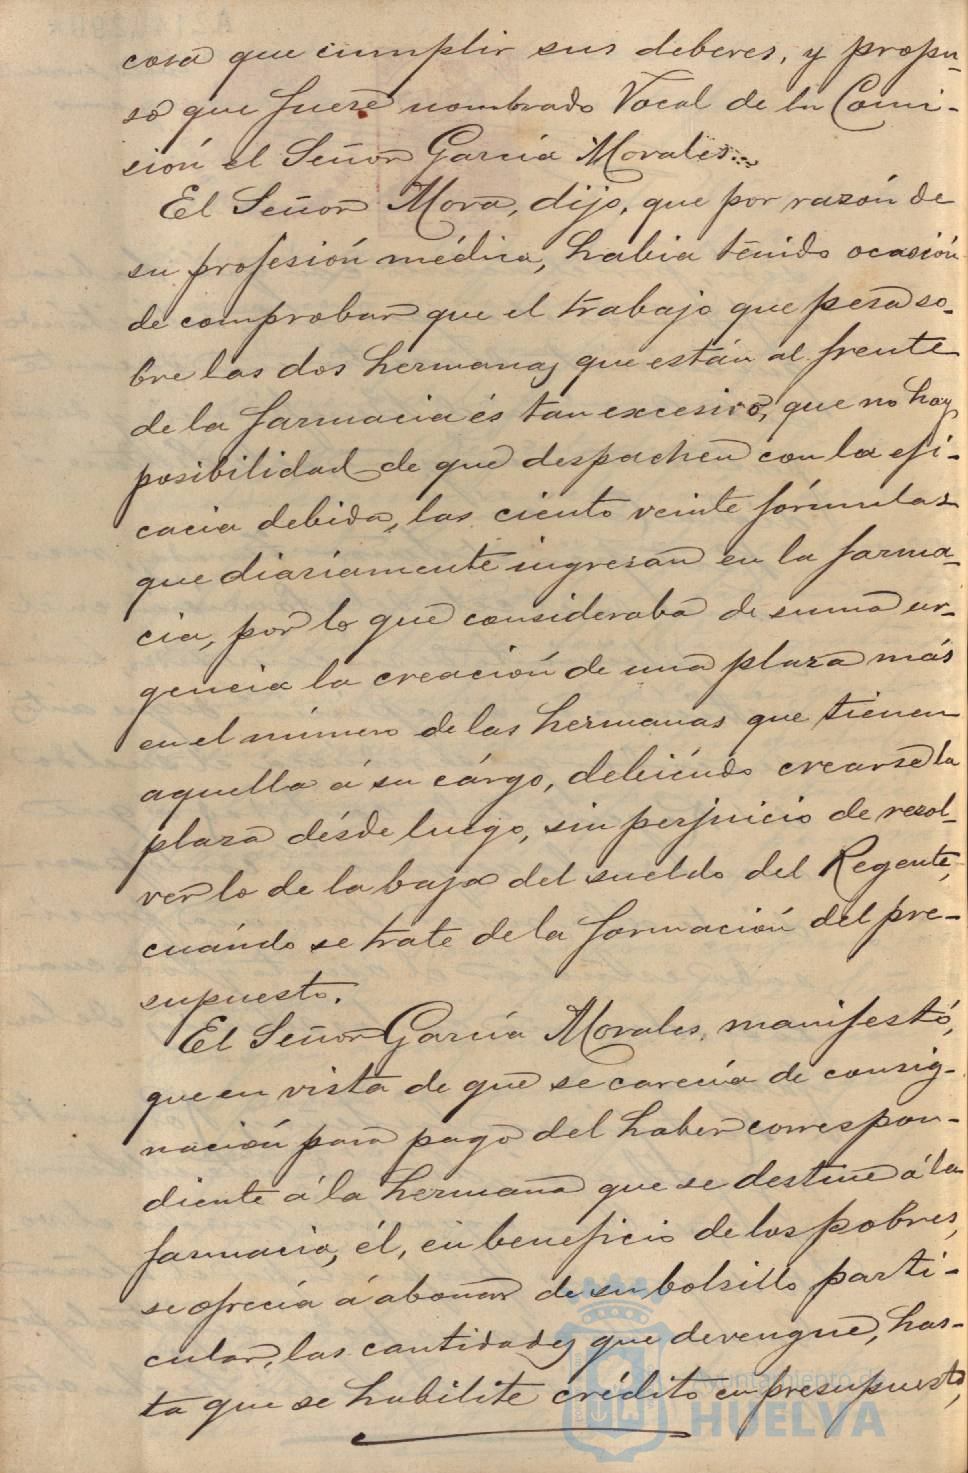 cosa que cumplir sus deberes, y propu-
so que fuese nombrado Vocal de la Comi-
sión el Señor García Morales.
El Señor Mora, dijo, que por razón de
su profesión médica, habia tenido ocasión
de comprobar que el trabajo que pesa so-
bre las dos hermanas que están al frente
de la farmacia és tan excesivo, que no hay
posibilidad de que despachen con la efi-
cacia debida, las ciento veinte fórmulas
que diariamente ingresan en la farma-
cia, por lo que consideraba de suma ur-
gencia la creación de una plaza más
en el número de las hermanas que tienen
aquella á su cárgo, debiéndo crearse la
plaza désde luego, sin perjuicio de resol-
ver lo de la baja del sueldo del Regente,
cuándo se trate de la formación del pre-
supuesto.
El Señor García Morales, manifestó,
que en vista de que se carecía de consig-
nación para pago del haber correspon-
diente á la hermana que se destine á la
farmacia, él, en beneficio de los pobres,
se ofrecía á abonar de su bolsillo parti-
cular, las cantidades que devengue, has-
ta que se habilite crédito en presupuesto,
Ayuntamiento de
HUELVA